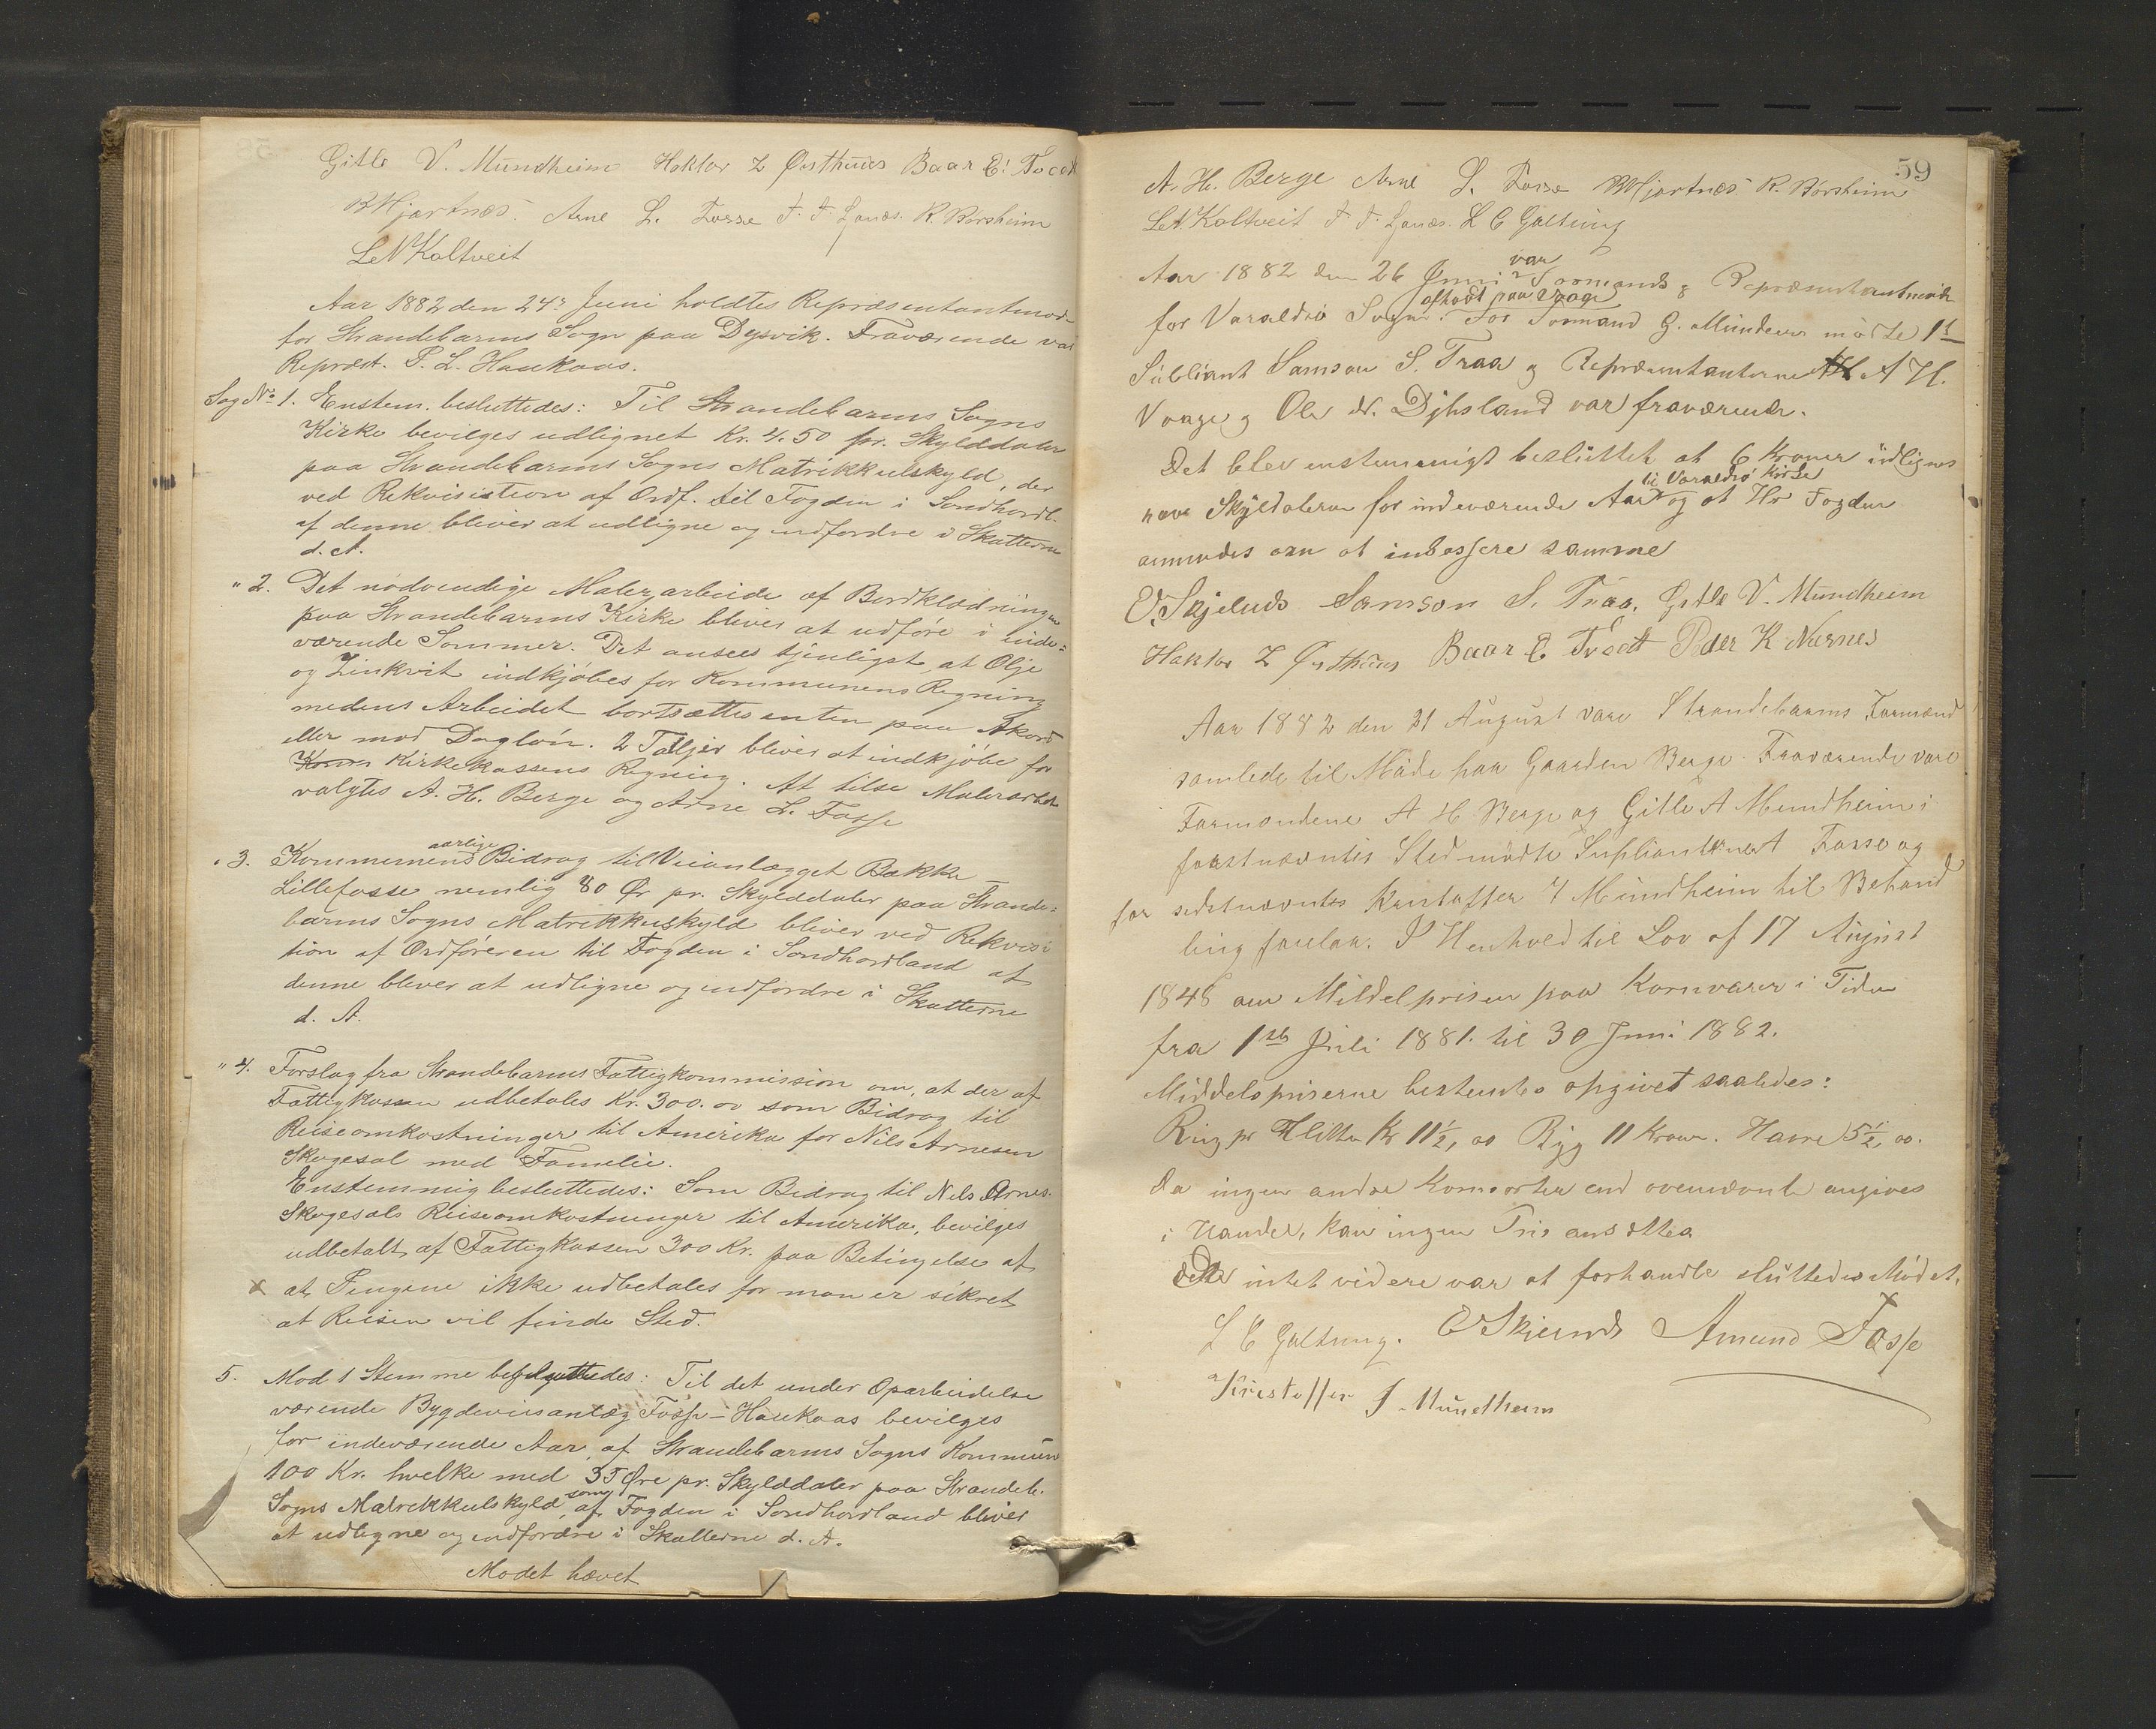 Gitle V. Mundheim Haktor Z Østhuus Baar E. Tvedt
B Hjartnæs. Arne L. Fosse J. J. Lønæs. R. Børsheim
L N Koltveit
Aar 1882 den 24de Juni holdtes Repræsentantmøde
for Strandebarms Sogn paa Dysvik. Fraværende var
Repræst. P. L. Haukaas.
Sag No 1. Enstem. besluttedes: Til Strandebarms Sogns
Kirke bevilges udlignet Kr. 4.50 pr. Skylddaler
paa Strandebarms Sogns Matrikkulskyld, der
ved Rekvisistion af Ordf. til Fogden i Søndhordl.
af denne bliver at udligne og indfordre i Skatterne
d. A.
" 2. Det nødvendige Malerarbeide af Bordklædningen
paa Strandebarms Kirke bliver at udføre i inde=
værende Sommer. Det ansees tjenligst, at Olje
og Zinkvit indkjøbes for Kommunens Regning
medens Arbeidet bortsættes enten paa Akord
eller mod Dagløn. 2 Taljer bliver at indkjøbe for
Kirkekassens Regning. At tilse Malerarbeidet
valgtes A. H. Berge og Arne L. Fosse
" 3. Kommunens aarlige Bidrag til Veianlægget Bække
Lillefosse nemlig 80 Ør pr. Skylddaler paa Strande=
barms Sogns Matrikkulskyld bliver ved Rekvisi
tion af Ordføreren til Fogden i Søndhordland af
denne bliver at udligne og indfordre i Skatterne
d. A.
" 4. Forslag fra Strandebarms Fattigkommission om, at der af
Fattigkassen udbetales Kr. 300.00 som Bidrag til
Reiseomkostninger til Amerika for Nils Arnesen
Skogesal med Famelie.
Enstemmig besluttedes: Som Bidrag til Nils Arnes.
Skogesals Reiseomkostninger til Amerika, bevilges
udbetalt af Fattigkassen 300 Kr. paa Betingelse af
x at Pengene ikke udbetales før man er sikret
at Reisen vil finde Sted.
5. Mod 1 Stemme besluttedes: Til det under Oparbeidelse
værende Bygdeveisanlæg Fosse-Haukaas bevilges
for indeværende Aar, af Strandebarms Sogns Kommune
100 Kr. hvelke med 35 Øre pr. Skylddaler paa Strandeb.
Sogns Matrekkulskyld, som af Fogden i Søndhordland bliver
at udligne og indfordre i Skatterne d. A.
Mødet hævet
59
A. H. Berge Arne L. Fosse B Hjartnæs R. Børsheim
L N Koltveit J. J. Lønæs. L C Galtung
Aar 1882 den 26 Juni var Formands & Repræsentantmøde
for Varaldsø Sogn afholdt paa Vaage. For Formand G. Mundheim mødte 1st
Subliant Samson S. Traa og Repræsentanterne A H.
Vaage og Ole N. Djhsland var fraværende.
Det blev enstemmigt besluttet at 6 Kroner udlignes
paa Skylddaleren for indeværende Aar til Varaldsø Kirke og at Hr Fogden
anmodes om at inkassere samme
O Skjelnds Samson S. Traa, Gitle V. Mundheim
Haktor Z Østhuus Baar E Tvedt Peder K Nernes
Aar 1882 den 31 August vare Strandebarms Formænd
samlede til Møde paa Gaarden Berge. Fraværende vare
Formændene A H Berge og Gitle A Mundheim i
førstnævntes Sted mødte Suplianterne A Fosse og
for sidstnævntes Kristoffer J Mundheim til Behand
ling forelaa: I Henhold til Lov af 17 August
1848 om Middelprisen paa Kornvarer i Tiden
fra 1ste Juli 1881. til 30 Juni 1882.
Middelspriserne bestemtes opgivet saaledes:
Rug pr Hlitter Kr 11½, 00 Byg 11 Kroner. Havre 5½, 00.
da ingen andre Kornsorter end ovennævnte angives
i Handel, kan ingen Pris ansættes
Da intet videre var at forhandle sluttedes Mødet.
L C Galtung. O Skjelnds Amund Fosse
Kristoffer J Mundheim